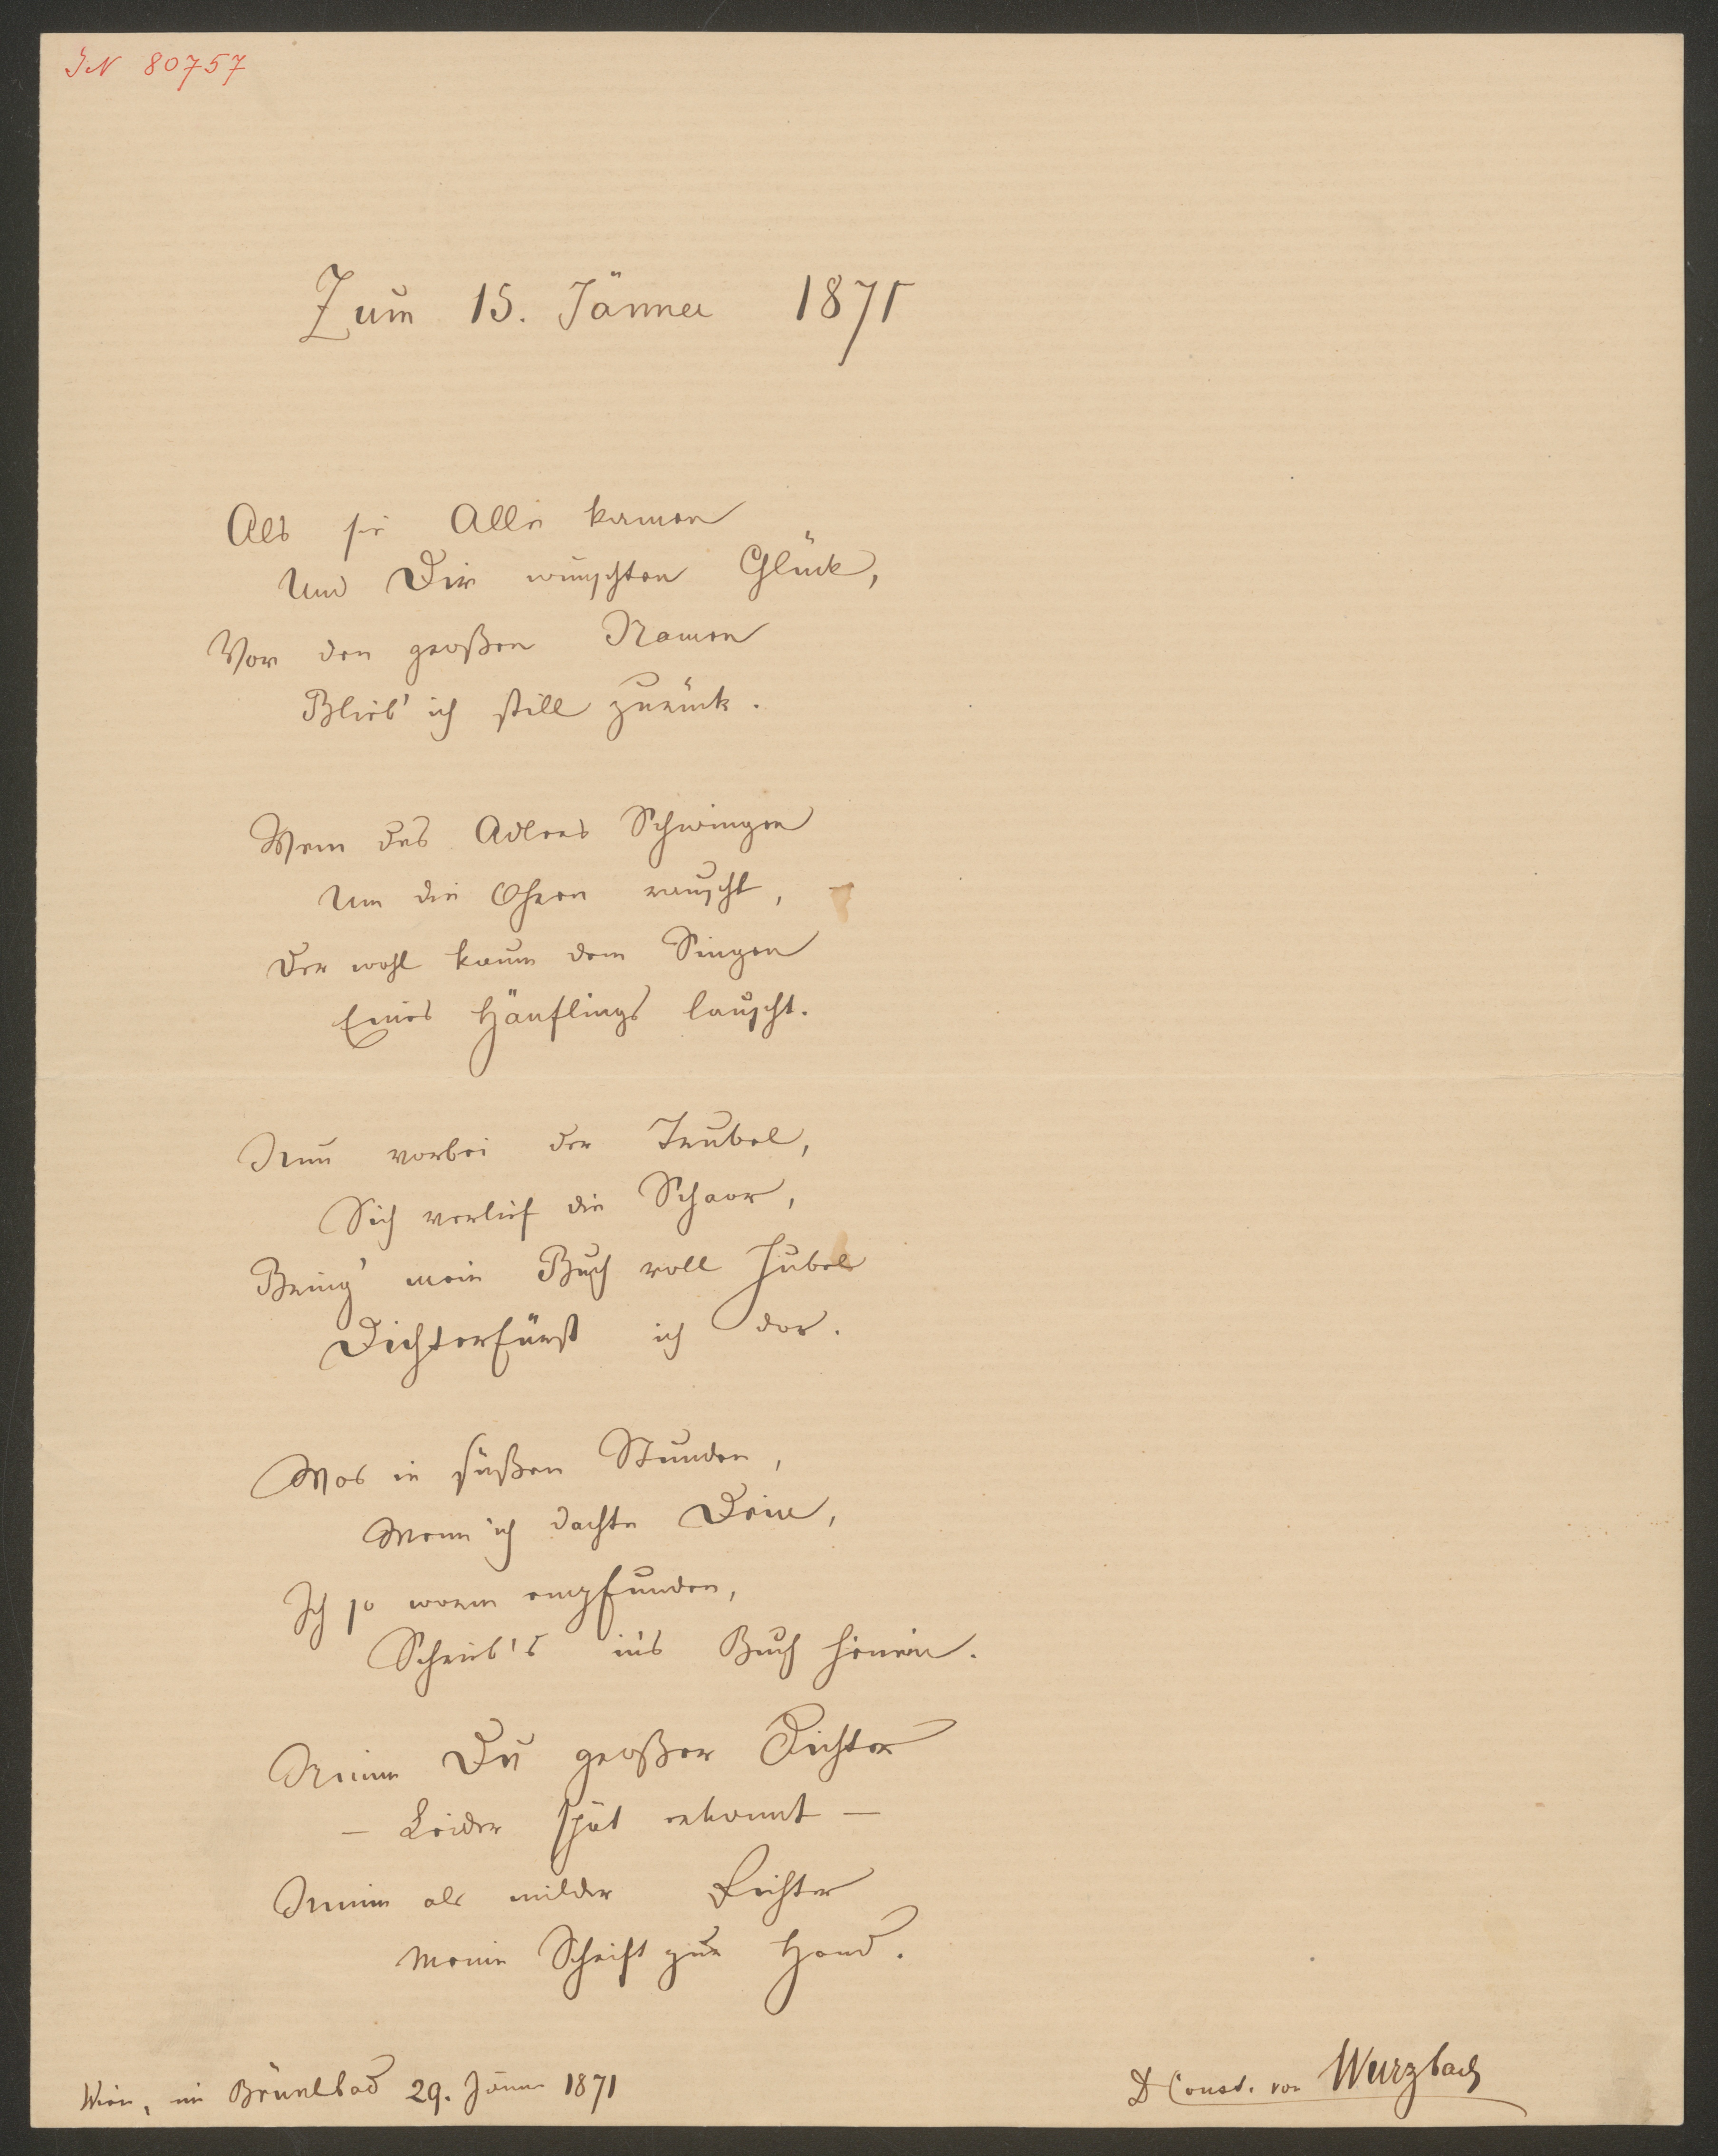 IN 80757
Zum 15. Jänner 1871
Als sie Alle kamen
Und Dir wünschten Glück,
Vor den großen Namen
Blieb' ich still zurück.
Wem des Adlers Schwingen
Um die Ohren rauscht,
Der wohl kaum dem Singen
Eines Hänflings lauscht.
Nun vorbei der Trubel,
Sich verlief die Schaar,
Bring' mein Buch voll Jubel
Dichterfürst ich dar.
Was in süßen Stunden,
Wenn ich dachte Dein,
Ich so warm empfunden,
Schrieb's in's Buch hinein.
Nimm Du großer Dichter
– Leider spät erkannt –
Nimm als milder Richter
Meine Schrift zur Hand.
Wien, im Brünlbad 29. Jänner 1871
D Const. von Wurzbach